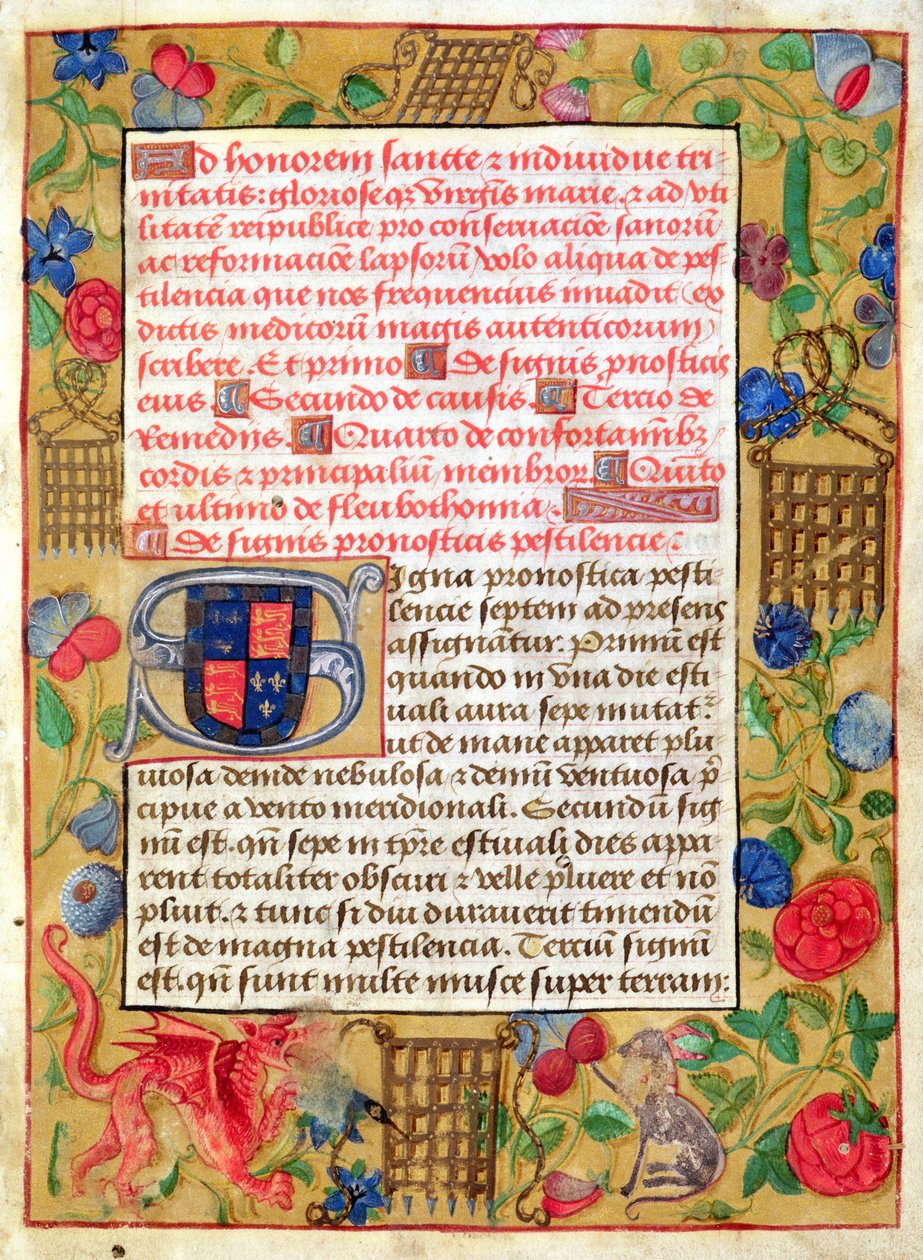 Ad honorem sancte ⁊ indiuidue tri-
nitatis: gloriose qȝ virgīs marie .⁊ ad vti
litatē reipublice pro conseruaciōe sanorū
ac reformaciōe lapsorū / volo aliqua de pes-
tilencia que nos frequencius inuadit / ex
dictis medicorū magis autenticorum
scribere . Et primo ¶ De signis pnosticis
eius ¶ Secundo de causis. ¶ Tercio de
Remedijs. ¶ Quarto de confortatiuībȝ
cordis ⁊ principaliū membrorꝝ ¶ Quīto
et ultimo de fleubothomia .
¶ De signis pronosticis pestilencie :
Signa pronostica pesti-
lencie septem ad presens
assignātur. Primū est
quando in vna die esti-
uali aura sepe mutatᷣ.
ut de mane apparet plu
uiosa deinde nebulosa ⁊ demū ventuosa p̄-
cipue a vento meridionali. Secundū sig-
nū est. qn̄ sepe in tp̄re estiuali dies appa-
rent totaliter obscuri ⁊ velle pluere et nō
pluit. ⁊ tunc si diu durauerit timendū
est de magna pestilencia. Terciū signū
est. qn̄ sunt multe musce super terram: